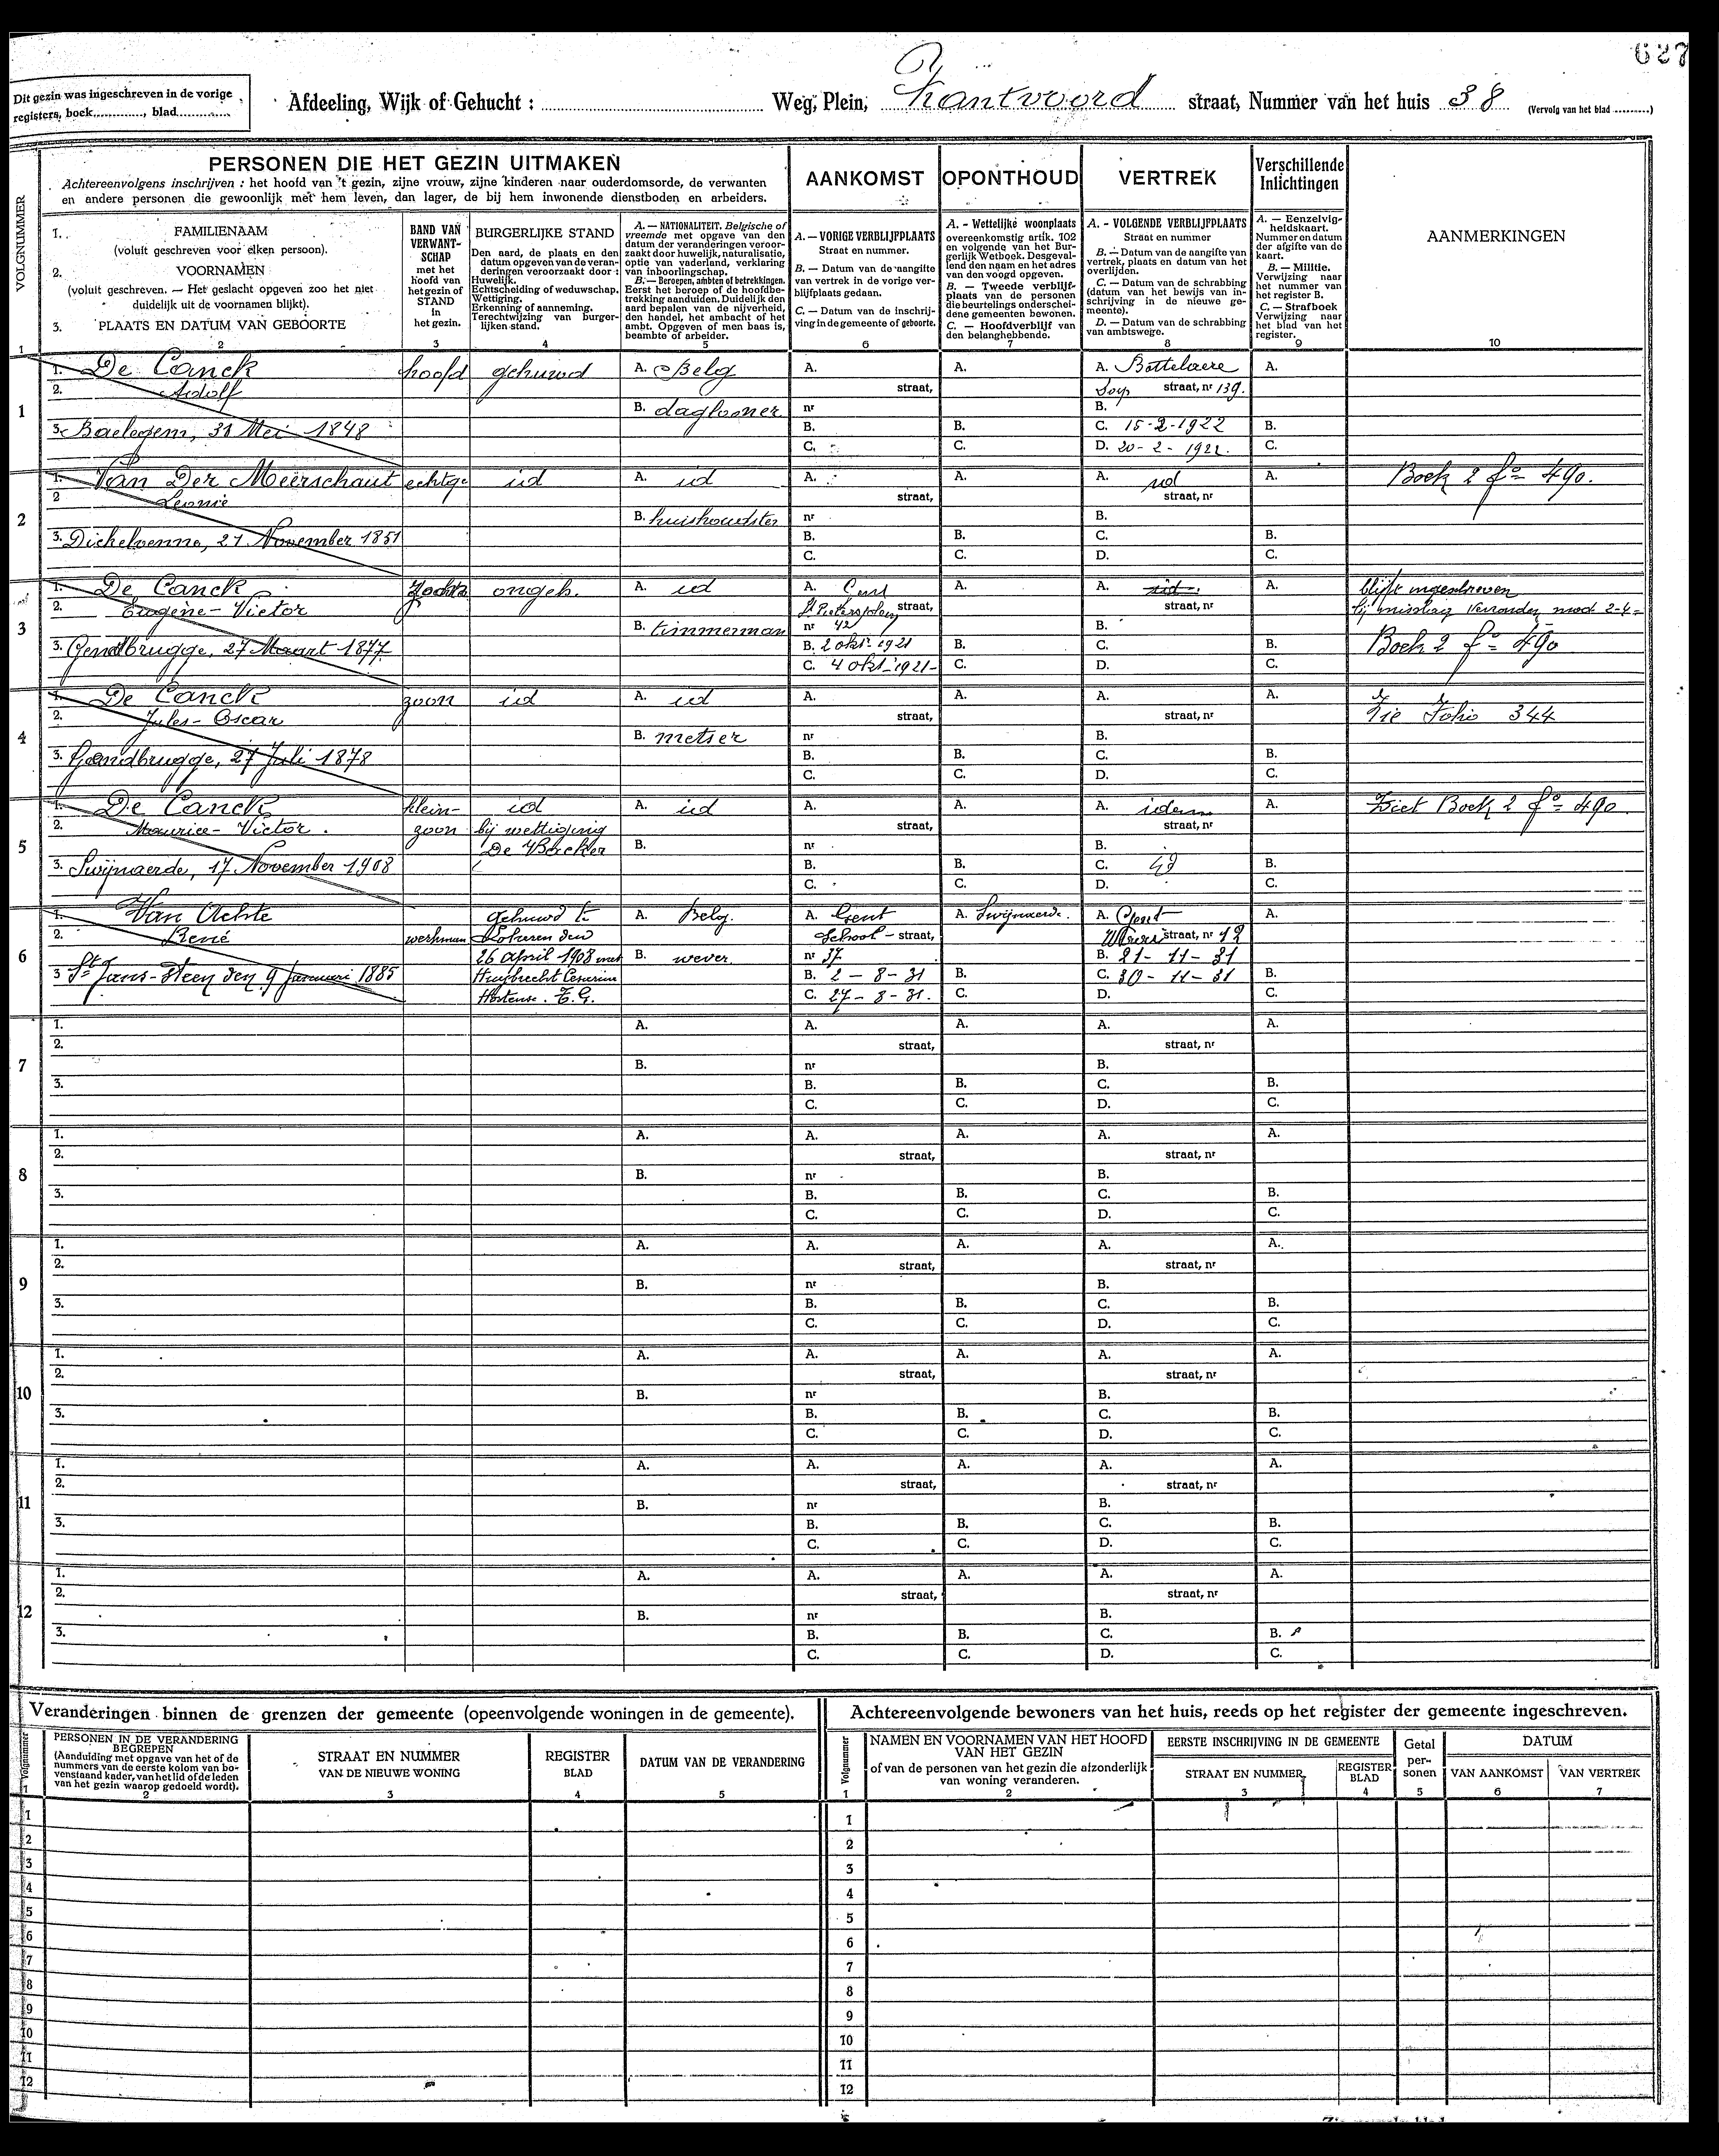 627
Dit gezin was ingeschreven in de vorige
registers, boek............, blad............
Afdeeling, Wijk of Gehucht : ............ Weg, Plein, Zantvoord straat, Nummer van het huis 38 (Vervolg van het blad ..........)
VOLGNUMMER
PERSONEN DIE HET GEZIN UITMAKEN
Achtereenvolgens inschrijven : het hoofd van 't gezin, zijne vrouw, zijne kinderen naar ouderdomsorde, de verwanten
en andere personen die gewoonlijk met hem leven, dan lager, de bij hem inwonende dienstboden en arbeiders.
AANKOMST
OPONTHOUD
VERTREK
Verschillende
Inlichtingen
1. FAMILIENAAM
(voluit geschreven voor elken persoon).
2. VOORNAMEN
(voluit geschreven. — Het geslacht opgeven zoo het niet
duidelijk uit de voornamen blijkt).
3. PLAATS EN DATUM VAN GEBOORTE
BAND VAN
VERWANT-
SCHAP
met het
hoofd van
het gezin of
STAND
in
het gezin.
BURGERLIJKE STAND
Den aard, de plaats en den
datum opgeven van de veran-
deringen veroorzaakt door :
Huwelijk.
Echtscheiding of weduwschap.
Wettiging.
Erkenning of aanneming.
Terechtwijzing van burger-
lijken stand.
A. — NATIONALITEIT. Belgische of
vreemde met opgave van den
datum der veranderingen veroor-
zaakt door huwelijk, naturalisatie,
optie van vaderland, verklaring
van inboorlingschap.
B. — Beroepen, ambten of betrekkingen.
Eerst het beroep of de hoofdbe-
trekking aanduiden. Duidelijk den
aard bepalen van de nijverheid,
den handel, het ambacht of het
ambt. Opgeven of men baas is,
beambte of arbeider.
A. — VORIGE VERBLIJFPLAATS
Straat en nummer.
B. — Datum van de aangifte
van vertrek in de vorige ver-
blijfplaats gedaan.
C. — Datum van de inschrij-
ving in de gemeente of geboorte.
A. - Wettelijke woonplaats
overeenkomstig artik. 102
en volgende van het Bur-
gerlijk Wetboek. Desgeval-
lend den naam en het adres
van den voogd opgeven.
B. — Tweede verblijf-
plaats van de personen
die beurtelings onderschei-
dene gemeenten bewonen.
C. — Hoofdverblijf van
den belanghebbende.
A. - VOLGENDE VERBLIJFPLAATS
Straat en nummer
B. — Datum van de aangifte van
vertrek, plaats en datum van het
overlijden.
C. — Datum van de schrabbing
(datum van het bewijs van in-
schrijving in de nieuwe ge-
meente).
D. — Datum van de schrabbing
van ambtswege.
A. — Eenzelvig-
heidskaart.
Nummer en datum
der afgifte van de
kaart.
B. — Militie.
Verwijzing naar
het nummer van
het register B.
C. — Strafboek
Verwijzing naar
het blad van het
register.
AANMERKINGEN
1 2 3 4 5 6 7 8 9 10
1. De Canck hoofd gehuwd A. Belg A. A. A. Bottelaere A.
2. Adolf straat, straat, nr 139.
1 B. daglooner nr B.
3. Baelegem, 31 Mei 1848 B. B. C. 15-2-1922 B.
C. C. D. 20-2-1922. C.
1. Van Der Meerschaut echtge id A. id A. A. A. id A. Boek 2 fo 490.
2 Leonie straat, straat, nr
2 B. huishoudster nr B.
3. Dickelvenne, 21 November 1851 B. B. C. B.
C. C. D. C.
1. De Canck ongeh. A. id A. Gent A. A. id A. blijft ingeschreven
2. Eugène-Victor St Pietersplein straat, straat, nr
3 B. timmerman nr 42 B.
3. Gendbrugge, 27 Maart 1877 B. 2 okt. 1921 B. C. B. Boek 2 fo 490
C. 4 okt. 1921 C. D. C.
1. De Canck zoon id A. id A. A. A. A. Zie Folio 344
2. Jules-Oscar straat, straat, nr
4 B. metser nr B.
3. Gendbrugge, 27 Juli 1878 B. B. C. B.
C. C. D. C.
1. De Canck klein- id A. id A. A. A. idem A. Ziet Boek 2 fo 490
2. Maurice-Victor. zoon bij wettiging straat, straat, nr
5 De Backer B. nr B.
3. Swijnaerde, 17 November 1908 B. B. C. B.
C. C. D. C.
1. Van Achte gehuwd te A. Belg. A. Gent A. Swijnaerde. A. Gent A.
2. René werkman Lokeren den School-straat, straat, nr 12
6 26 april 1908 met B. wever nr 37 B. 21-11-31
3 St Jans-Steen den 9 Januari 1885 Huybrecht B. 2-8-31 B. C. 30-11-31 B.
Hortense. C. 27-8-31. C. D. C.
1. A. A. A. A. A.
2. straat, straat, nr
7 B. nr B.
3. B. B. C. B.
C. C. D. C.
1. A. A. A. A. A.
2. straat, straat, nr
8 B. nr B.
3. B. B. C. B.
C. C. D. C.
1. A. A. A. A. A.
2. straat, straat, nr
9 B. nr B.
3. B. B. C. B.
C. C. D. C.
1. A. A. A. A. A.
2. straat, straat, nr
10 B. nr B.
3. B. B. C. B.
C. C. D. C.
1. A. A. A. A. A.
2. straat, straat, nr
11 B. nr B.
3. B. B. C. B.
C. C. D. C.
1. A. A. A. A. A.
2. straat, straat, nr
12 B. nr B.
3. B. B. C. B.
C. C. D. C.
Veranderingen binnen de grenzen der gemeente (opeenvolgende woningen in de gemeente).
Volgnummer
PERSONEN IN DE VERANDERING
BEGREPEN
(Aanduiding met opgave van het of de
nummers van de eerste kolom van bo-
venstaand kader, van het lid of de leden
van het gezin waarop gedoeld wordt).
STRAAT EN NUMMER
VAN DE NIEUWE WONING
REGISTER
BLAD
DATUM VAN DE VERANDERING
1 2 3 4 5
1
2
3
4
5
6
7
8
9
10
11
12
Achtereenvolgende bewoners van het huis, reeds op het register der gemeente ingeschreven.
Volgnummer
NAMEN EN VOORNAMEN VAN HET HOOFD
VAN HET GEZIN
of van de personen van het gezin die afzonderlijk
van woning veranderen.
EERSTE INSCHRIJVING IN DE GEMEENTE
STRAAT EN NUMMER
REGISTER
BLAD
Getal
per-
sonen
DATUM
VAN AANKOMST
VAN VERTREK
1 2 3 4 5 6 7
1
2
3
4
5
6
7
8
9
10
11
12